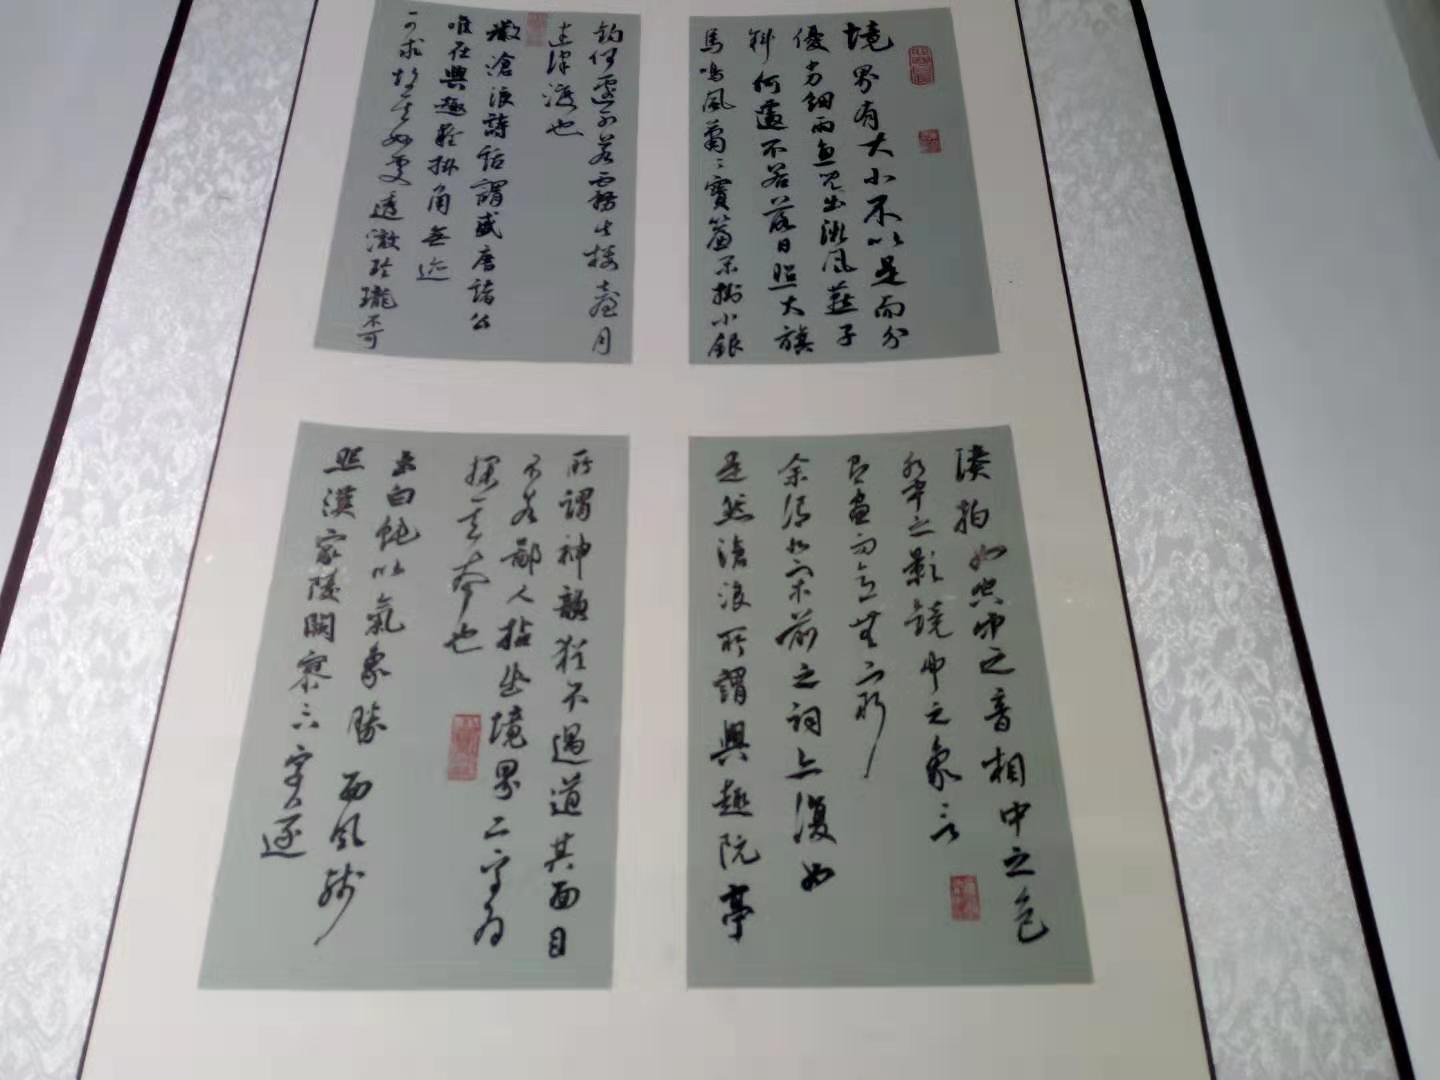 境界有大小不以是而分
優劣細雨魚兒出微風燕子
斜何遽不若落日照大旗
馬鳴風蕭々寶簾閑掛小銀
鈎何遽不若霧失樓臺月
迷津渡也
嚴滄浪詩話謂盛唐諸公
唯在興趣羚掛角無迹
可求故其妙處透澈玲瓏不可
湊拍如空中之音相中之色
水中之影鏡中之象言
有盡而意無窮
余謂北宋前之詞亦復如
是然滄浪所謂興趣阮亭
所謂神韻猶不過道其面目
不若鄙人拈出境界二字為
探其本也
太白純以氣象勝西風殘
照漢家陵闕寥八字遂